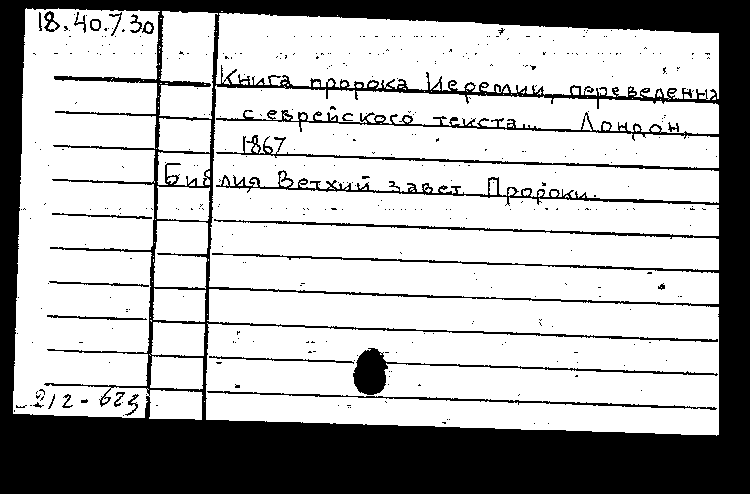 18.40.7.30
Книга пророка Иеремии, переведенна
с еврейского текста... Лондон,
1867
Библия Ветхий завет Пророки.
212-623